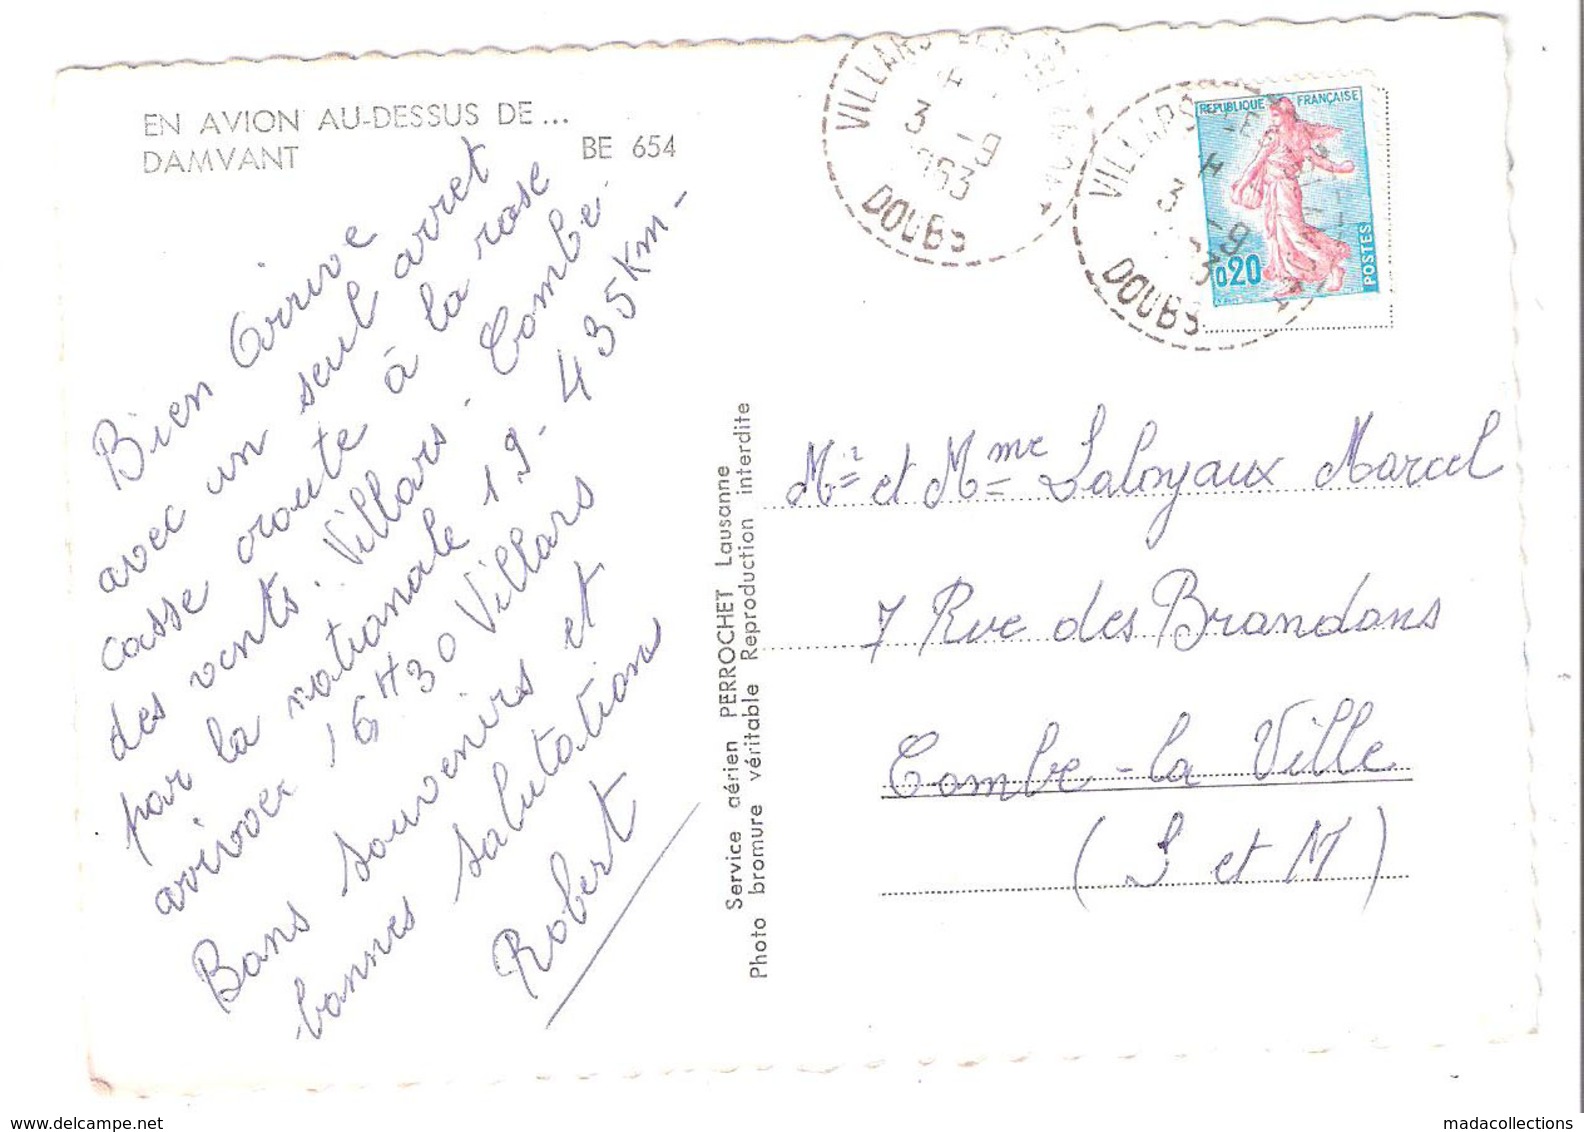 EN AVION AU-DESSUS DE...
DAMVANT
BE 654
Bien Arrive
avec un seul arret
casse croute à la rose
des vents. Villars. Combe
par la nationale 19 - 435 Km -
arivoer 16H30 Villars
Bons souvenirs et
bonnes salutations
Robert
Service aérien PERROCHET Lausanne
Photo bromure véritable Reproduction interdite
VILLARS
3 -9
DOUBS
VILLARS
3 -9
DOUBS
REPUBLIQUE FRANÇAISE
0,20
POSTES
Mr et Mme Laloyaux Marcel
7 Rue des Brandons
Combe-la Ville
(S et M)
www.delcampe.net
madacollections